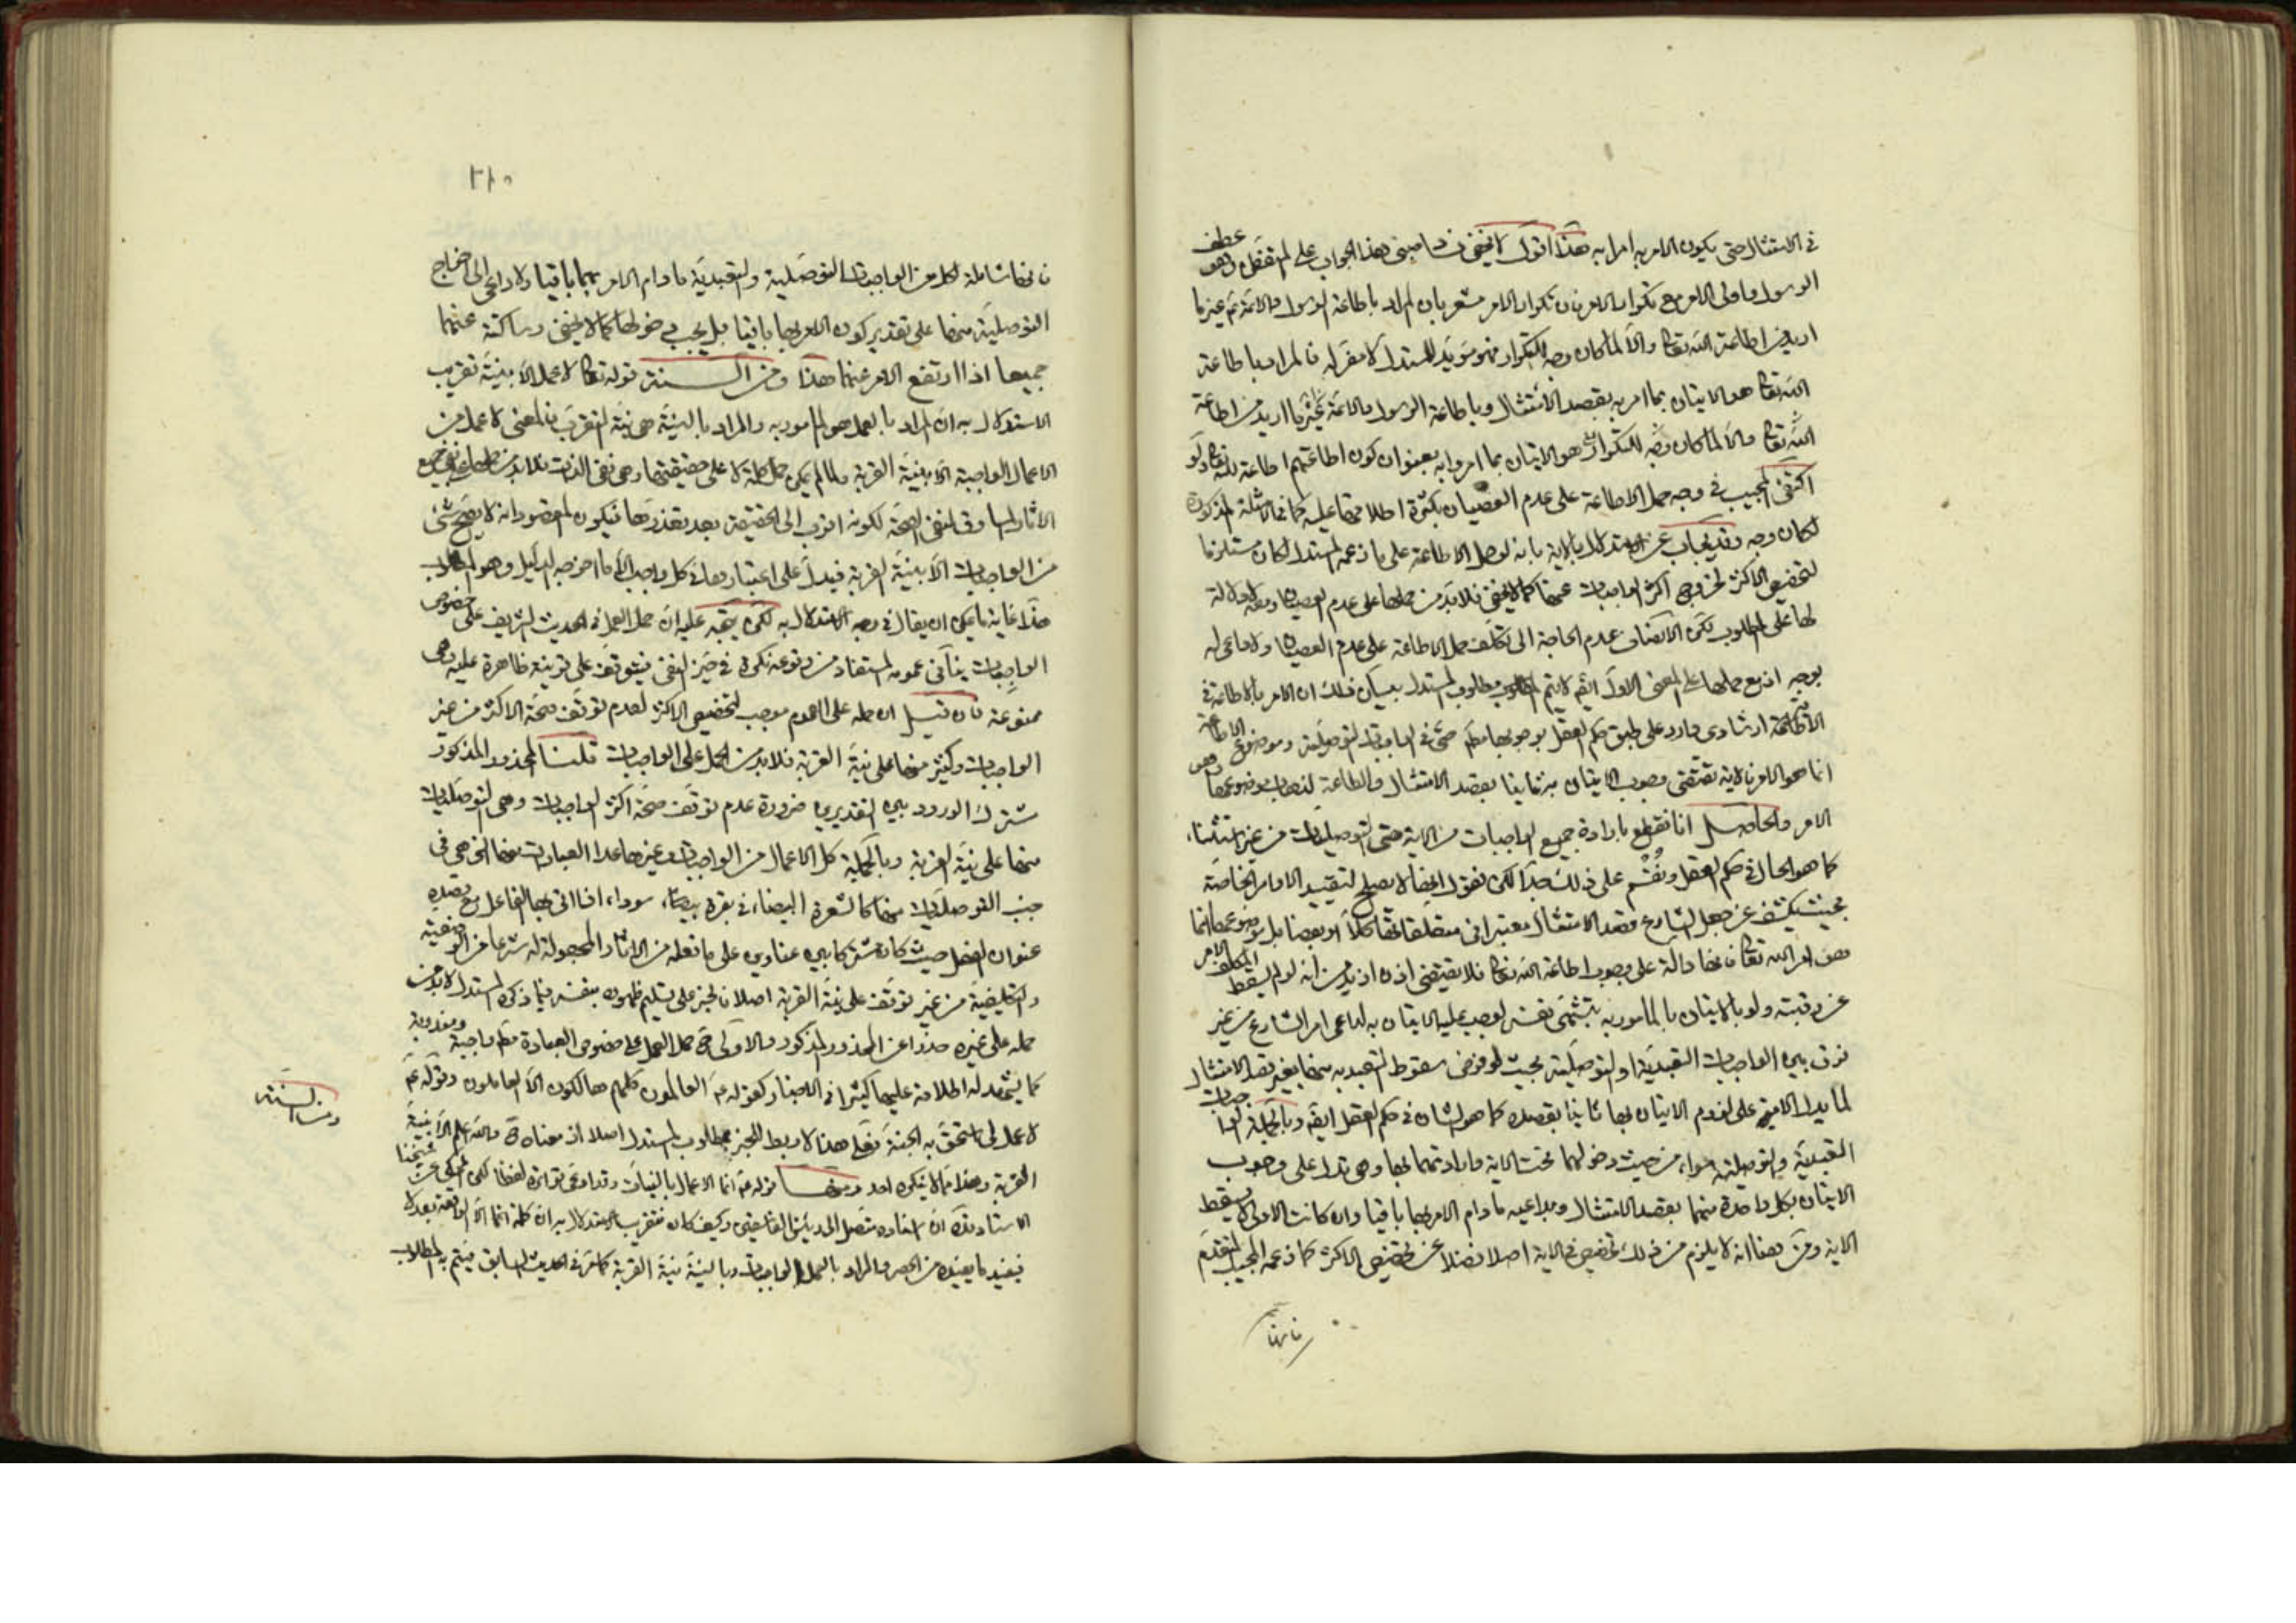 في الامتثال حتى يكون الامر به امرا به هذا اقول لا يخفى فساد مبنى هذا الجواب على لم تغفل وهو عطف
الرسول واولى الامر مع تكرار الامر فان تكرار الامر مشعر بان المراد باطاعة الرسول والائمة عم غير ما
اريد من اطاعة الله تعالى والا لما كان وجه للتكرار فهو مؤيد للمستدل لا مضر له فالمراد باطاعة
الله تعالى هو الاتيان بما امر به بقصد الامتثال وباطاعة الرسول والائمة عم غير ما اريد من اطاعة
الله تعالى والا لما كان وجه للتكرار هو الاتيان بما امروا به بعنوان كون اطاعتهم اطاعة لله تعالى ولو
اكتفى المجيب في وجه حمل الاطاعة على عدم العصيان بكثرة اطلاقها عليه كما في الامثلة المذكورة
لكان وجه وقد يجاب عن الاستدلال بالاية بانه لو حمل الاطاعة على ما زعمه المستدل لكان مستلزما
لتخصيص الاكثر لخروج اكثر الواجبات عنها كما لا يخفى فلا بد من حملها على عدم العصيان ومعه لا دلالة
لها على المطلوب لكن الانصاف عدم الحاجة الى تكلف حمل الاطاعة على عدم العصيان ولا داعى له
بوجه اذ مع حملها على المعنى الاول ايضا لا يتم مطلوب المستدل بيان ذلك ان الامر بالاطاعة في
الاية ارشادى وارد على طبق حكم العقل بوجوبها مط حتى في الواجبات التوصلية وموضوع الاطاعة
انما هو الامر فالاية تقتضى وجوب الاتيان به ثانيا بقصد الامتثال والطاعة لذهاب موضوعها وهو
الامر والحاصل انا نقطع بارادة جميع الواجبات من الاية حتى التوصليات من غير استثناء
كما هو الحال في حكم العقل ونقسم على ذلك جدا لكن نقول انها لا يصلح لتقييد الاوامر الخاصة
بحيث يكشف عن جعل الشارع قصد الامتثال معتبرا في متعلقاتها كلا او بعضا بل موضوعها انما
هو امر الله تعالى فانها دالة على وجوب اطاعة الله تعالى فلا يقتضى اذن ازيد من انه لو لم يسقط المكلف الامر
عن رقبته ولو بالاتيان بالمامور به بتشهى نفسه لوجب عليه الاتيان به لداعى امر الشارع من غير
فرق بين الواجبات التعبدية والتوصلية بحيث لو فرض سقوط التعبد به منها بغير قصد الامتثال
لما يدل الاية على لزوم الاتيان بها ثانيا بقصده كما هو الشان في حكم العقل ايضا وبالجملة الواجبات
التعبدية والتوصلية سواء من حيث دخولهما تحت الاية وارادتهما بها وهى تدل على وجوب
الاتيان بكل واحدة منهما بقصد الامتثال وبداعيه ما دام الامر بها باقيا وان كانت الاولى لا يسقط
الاية ومن هنا انه لا يلزم من ذلك تخصيص في الاية اصلا فضلا عن تخصيص الاكثر كما زعمه المجيب المتقدم
فانها
٢١٠
فانها شاملة لكل من الواجبات التوصلية والتعبدية ما دام الامر بهما باقيا ولا داعى الى اخراج
التوصلية منها على تقدير كون الامر بها باقيا بل يجب دخولها كما لا يخفى وساكتة عنهما
جميعا اذا ارتفع الامر عنهما هذا ومن السنة قوله تعالى لا عمل الا بنية تقريب
الاستدلال به ان المراد بالعمل هو المامور به والمراد بالنية هى نية التقرب فالمعنى لا عمل من
الاعمال الواجبة الا بنية القربة ولما لم يمكن حمل كلمة لا على حقيقتها وهى نفى الذات فلا بد من حملها على نفى جميع
الاثار المساوق لنفى الصحة لكونه اقرب الى الحقيقة بعد تعذرها فيكون المقصود انه لا يصح شئ
من الواجبات الا بنية القربة فيدل على اعتبارها في كل واجب الا ما اخرجه الدليل وهو المطلوب
هذا غاية ما يمكن ان يقال في وجه الاستدلال به لكن يتجه عليه ان حمل العمل في الحديث الشريف على خصوص
الواجبات ينافى عمومه المستفاد من وقوعه نكرة في حيز النفى فيتوقف على قرينة ظاهرة عليه وهى
ممنوعة فان قيل ان حمله على العموم موجب لتخصيص الاكثر لعدم توقف صحة الاكثر من غير
الواجبات وكثير منها على نية القربة فلا بد من الحمل على الواجبات قلنا المحذور المذكور
مشترك الورود بين التقديرين ضرورة عدم توقف صحة اكثر الواجبات وهى التوصليات
منها على نية القربة وبالجملة كل الاعمال من الواجبات وغيرها عدا العبادات منها التى هى في
جنب التوصليات منها كالشعرة البيضاء في بقرة سوداء اذا اتى بها الفاعل مع قصده
عنوان الفعل حيث كان مشتركا بين عناوين على ما نعلمه من الاثار المجعولة له شرعا من الوضعية
والتكليفية من غير توقف على نية القربة اصلا فالخبر على تسليم ظهوره بنفسه فيما ذكره المستدل لا بد من
حمله على غيره حذرا عن المحذور المذكور والاولى ح حمل العمل على خصوص العبادة مط واجبة ومندوبة
كما يشهد له اطلاقه عليها كثيرا في الاخبار كقوله عم العالمون كلهم هالكون الا العاملون وقوله عم
لا عمل لى استحق به الجنة فعلى هذا لا ربط للخبر بمطلوب المستدل اصلا اذ معناه ح والله اعلم الا بنية
القربة وهذا مما لا ينكره احد ومنها قوله عم انما الاعمال بالنيات وقد ادعى تواتره لفظا لكن
الاستاد ذكر ان اسناده متصل الى وكيف كان فتقريب الاستدلال به ان كلمة انما الا الواقعة بعد لا
فيفيد ما يفيده من الحصر والمراد بالعمل الواجبات وبالنية نية القربة كما مر في الحديث السابق فيتم به المطلوب
ومن السنة